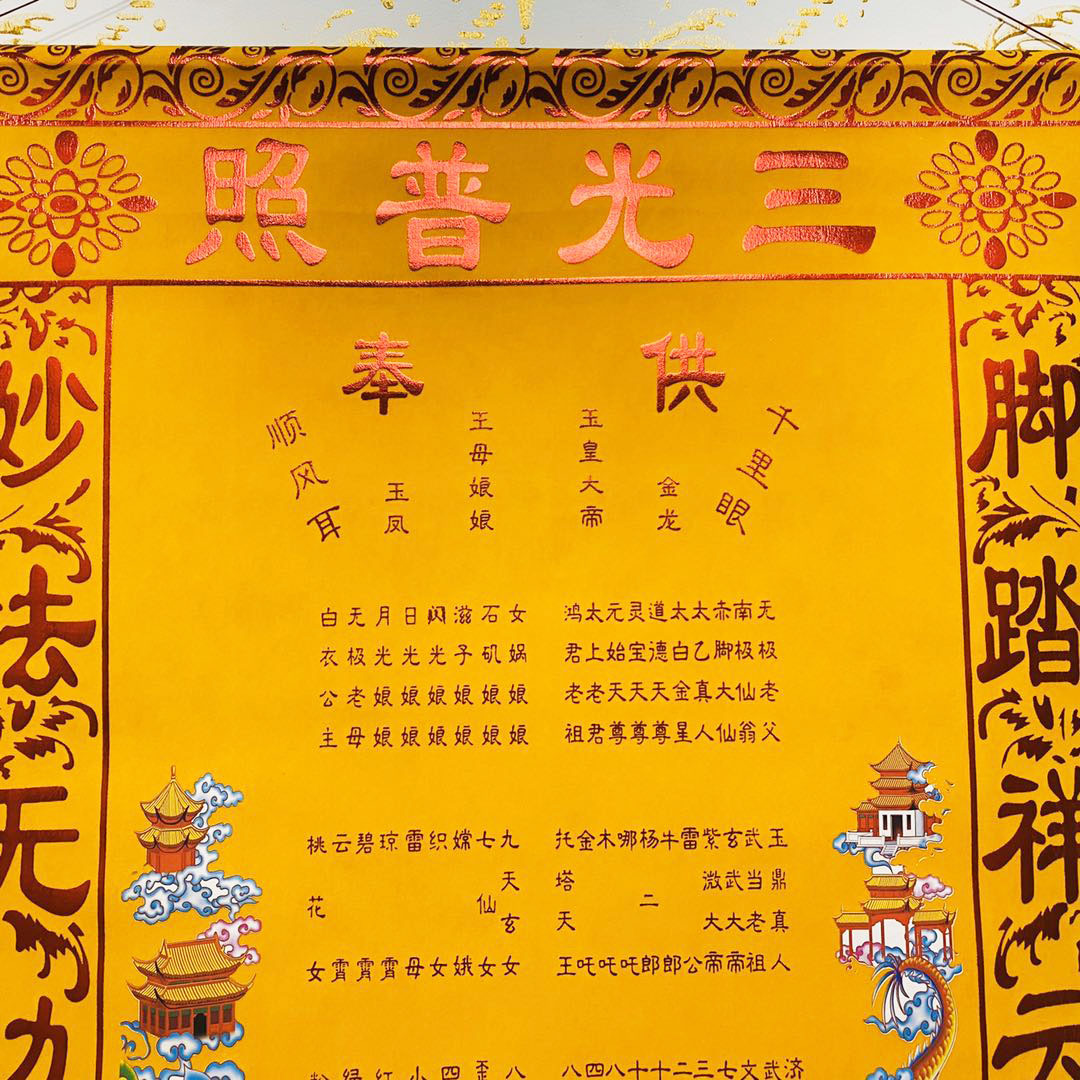 三光普照
供奉
千里眼
金龙
玉皇大帝
王母娘娘
玉凤
顺风耳
无极老父
南极仙翁
赤脚大仙
太乙真人
太白金星
道德天尊
灵宝天尊
元始天尊
太上老君
鸿君老祖
女娲娘娘
石矶娘娘
滋子娘娘
闪光娘娘
日光娘娘
月光娘娘
无极老母
白衣公主
玉鼎真人
武当老祖
玄武大帝
紫溦大帝
雷公
牛郎
杨二郎
哪吒
木吒
金吒
托塔天王
九天玄女
七仙女
嫦娥
织女
雷母
琼霄
碧霄
云霄
桃花女
济
武
文
七
三
二
十
十
八
四
八
八
歪
四
小
红
绿
脚踏祥云
妙法无